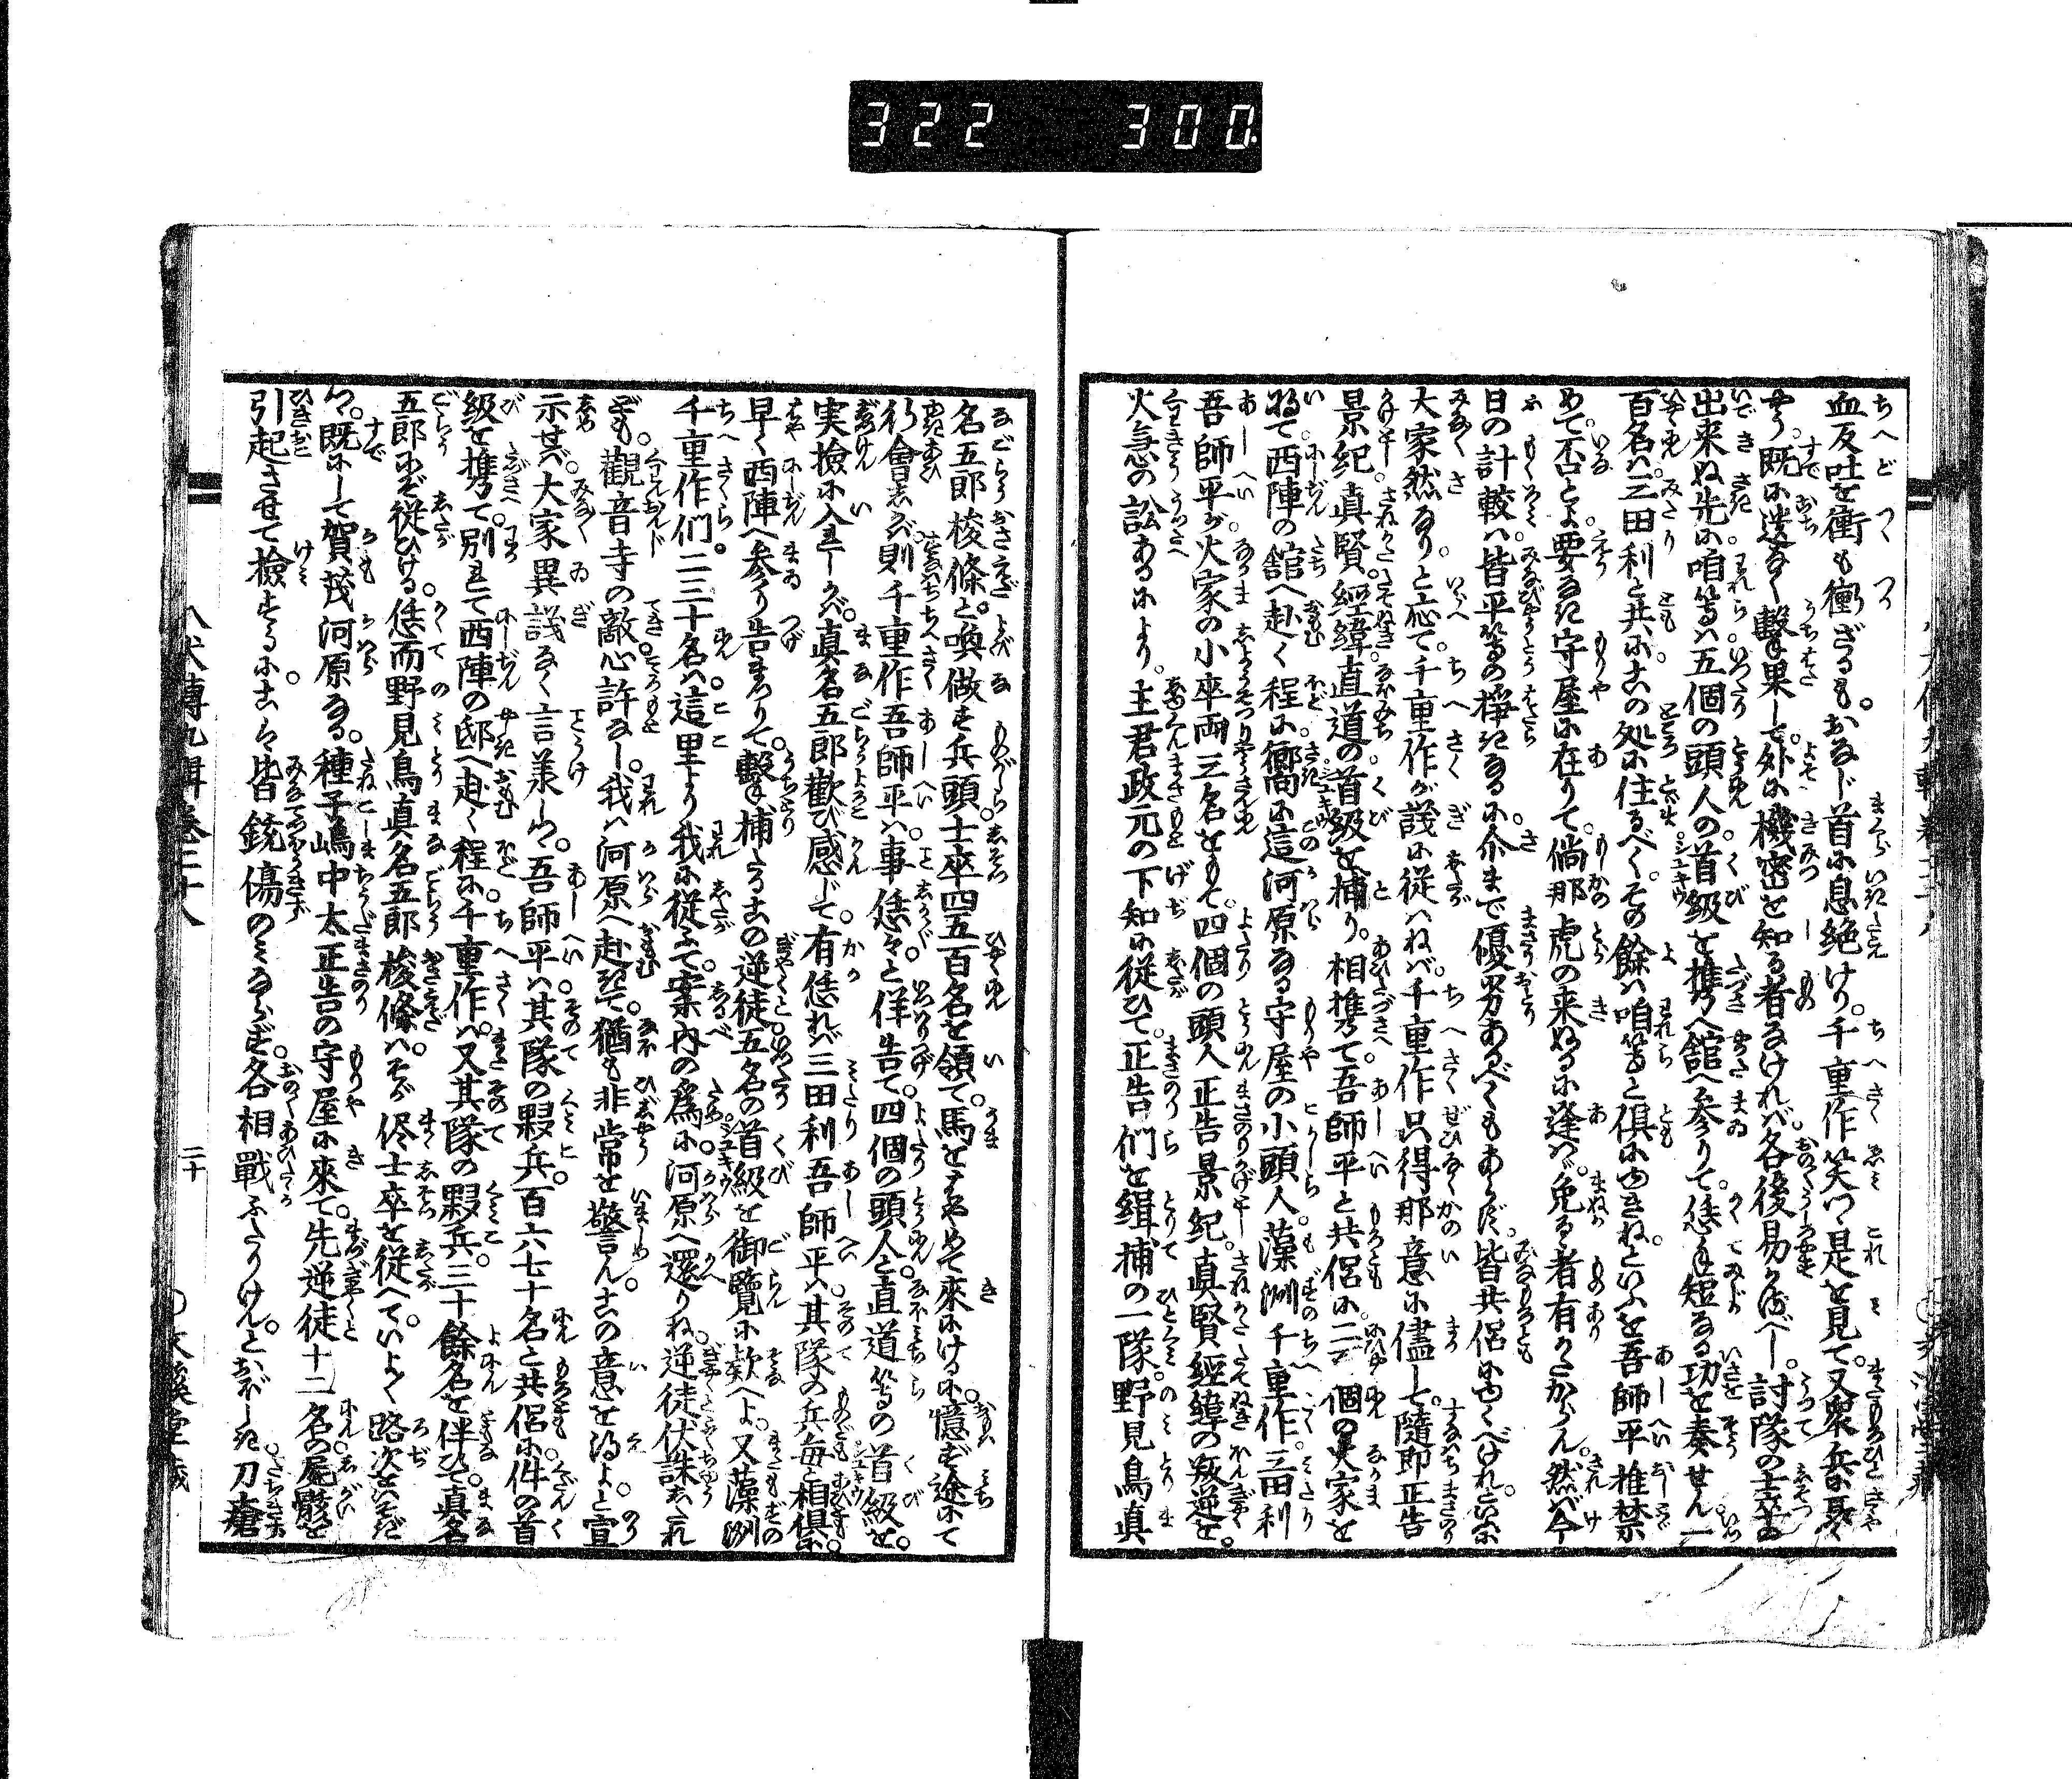 322 300
血反吐を衝も衝ざるも。おなじ首に息絶けり。千重作笑つゝ是を見て。又衆兵に聶く
やう。既に遺なく撃果して。外に機密を知る者なければ。各後易かるべし。討隊の士卒の
出来ぬ先に咱等は五個の頭人の。首級を携へ館へ参りて。恁々と短なる功を奏せん。一
百名は三田利と共にこの処に住るべく。その餘は咱等と倶にゆきねといふを吾師平推禁
めて。否とよ要なき守屋に在りて。倘那虎の来ぬるに逢はゞ。免るゝ者有がたからん。然ば今
日の計較は。皆平等の挊きなるに。介まで優劣あるべくもあらず。皆共侶にゆくべけれといふに
大家然なりと応て。千重作が議に従はねば。千重作只得那意に儘して。隨即正告
景紀真賢。經緯直道の首級を捕り。相携て吾師平と共侶に。二三個の火家を
將て西陣の館へ赴く程に。嚮に這河原なる守屋の小頭人。藻洲千重作。三田利
吾師平が火家の小卒両三名をもて。四個の頭人正告景紀。真賢經緯の叛逆を。
火急の訟あるにより。主君政元の下知に従ひて。正告們を緝捕の一隊。野見鳥真
名五郎梭條と喚做す兵頭。士卒四五百名を領て。馬をはやめて來にける。憶ず途にて
行會しかば。則千重作吾師平は。事恁々と佯告て。四個の頭人と直道等の首級を。
実撿に入れしかば。真名五郎歡び感じて。有恁れば三田利吾師平は。其隊の兵毎と相倶に。
早く西陣へ参り告まつりて。擊捕たるこの逆徒五名の首級を御覽に款へよ。又藻洲
千重作們二三十名は。這里より我に従ふて。案内の爲に河原へ還りね。逆徒伏誅したれ
ども。觀音寺の敵。心許なし。我は河原へ赴きて。猶も非常を警めん。この意を得よと宣
示せば。大家異議なく言承しつ。吾師平は其隊の夥兵。百六七十名と共侶に。件の首
級を携て。別れて西陣の邸へ赴く程に。千重作は又其隊の夥兵。三十餘名を伴ひて。真名
五郎にぞ従ひける。恁而野見鳥真名五郎梭條は。そが侭士卒を従へて。いよゝ路次をいそぎ
つ。既にして賀茂河原なる。種子嶋中太正告の守屋に來て。先逆徒十二名の屍骸を
引起させて檢するに。これ皆銃傷のみならず。各相戰ふたりけん。とおぼしき刀瘡
八犬傳九輯巻三十八 二十